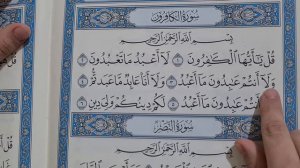 سُورَةُ الكَافِرُونَ
بِسْمِ اللَّهِ الرَّحْمَٰنِ الرَّحِيمِ
قُلْ يَا أَيُّهَا الْكَافِرُونَ ١ لَا أَعْبُدُ مَا تَعْبُدُونَ ٢
وَلَا أَنتُمْ عَابِدُونَ مَا أَعْبُدُ ٣ وَلَا أَنَا عَابِدٌ مَّا عَبَدتُّمْ ٤
وَلَا أَنتُمْ عَابِدُونَ مَا أَعْبُدُ ٥ لَكُمْ دِينُكُمْ وَلِيَ دِينِ ٦
سُورَةُ النَّصْرِ
بِسْمِ اللَّهِ الرَّحْمَٰنِ الرَّحِيمِ